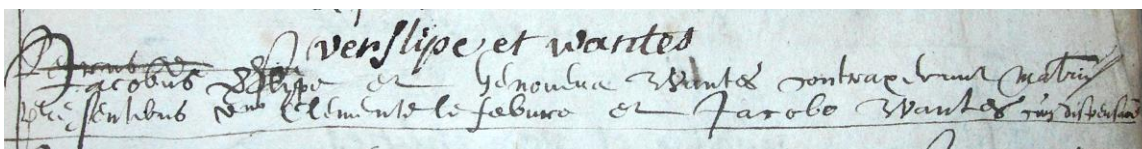 verslipe et wantes
Jacobus Slipe et Genoveva Wantes contraxerunt matrim
presentibus dno Clemente le febure et Jacobo Wantes cum dispensaoe